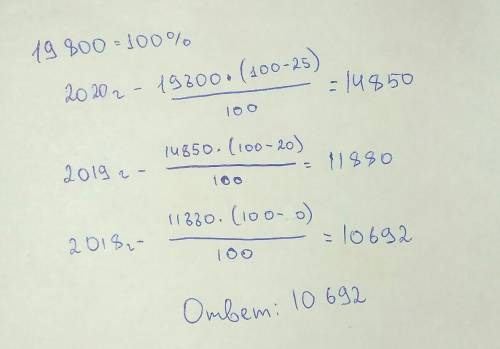 19 800 = 100%
2020 г - 19800 • (100-25) / 100 = 14850
2019 г - 14850 • (100-20) / 100 = 11880
2018 г - 11880 • (100- 0) / 100 = 10692
Ответ: 10 692